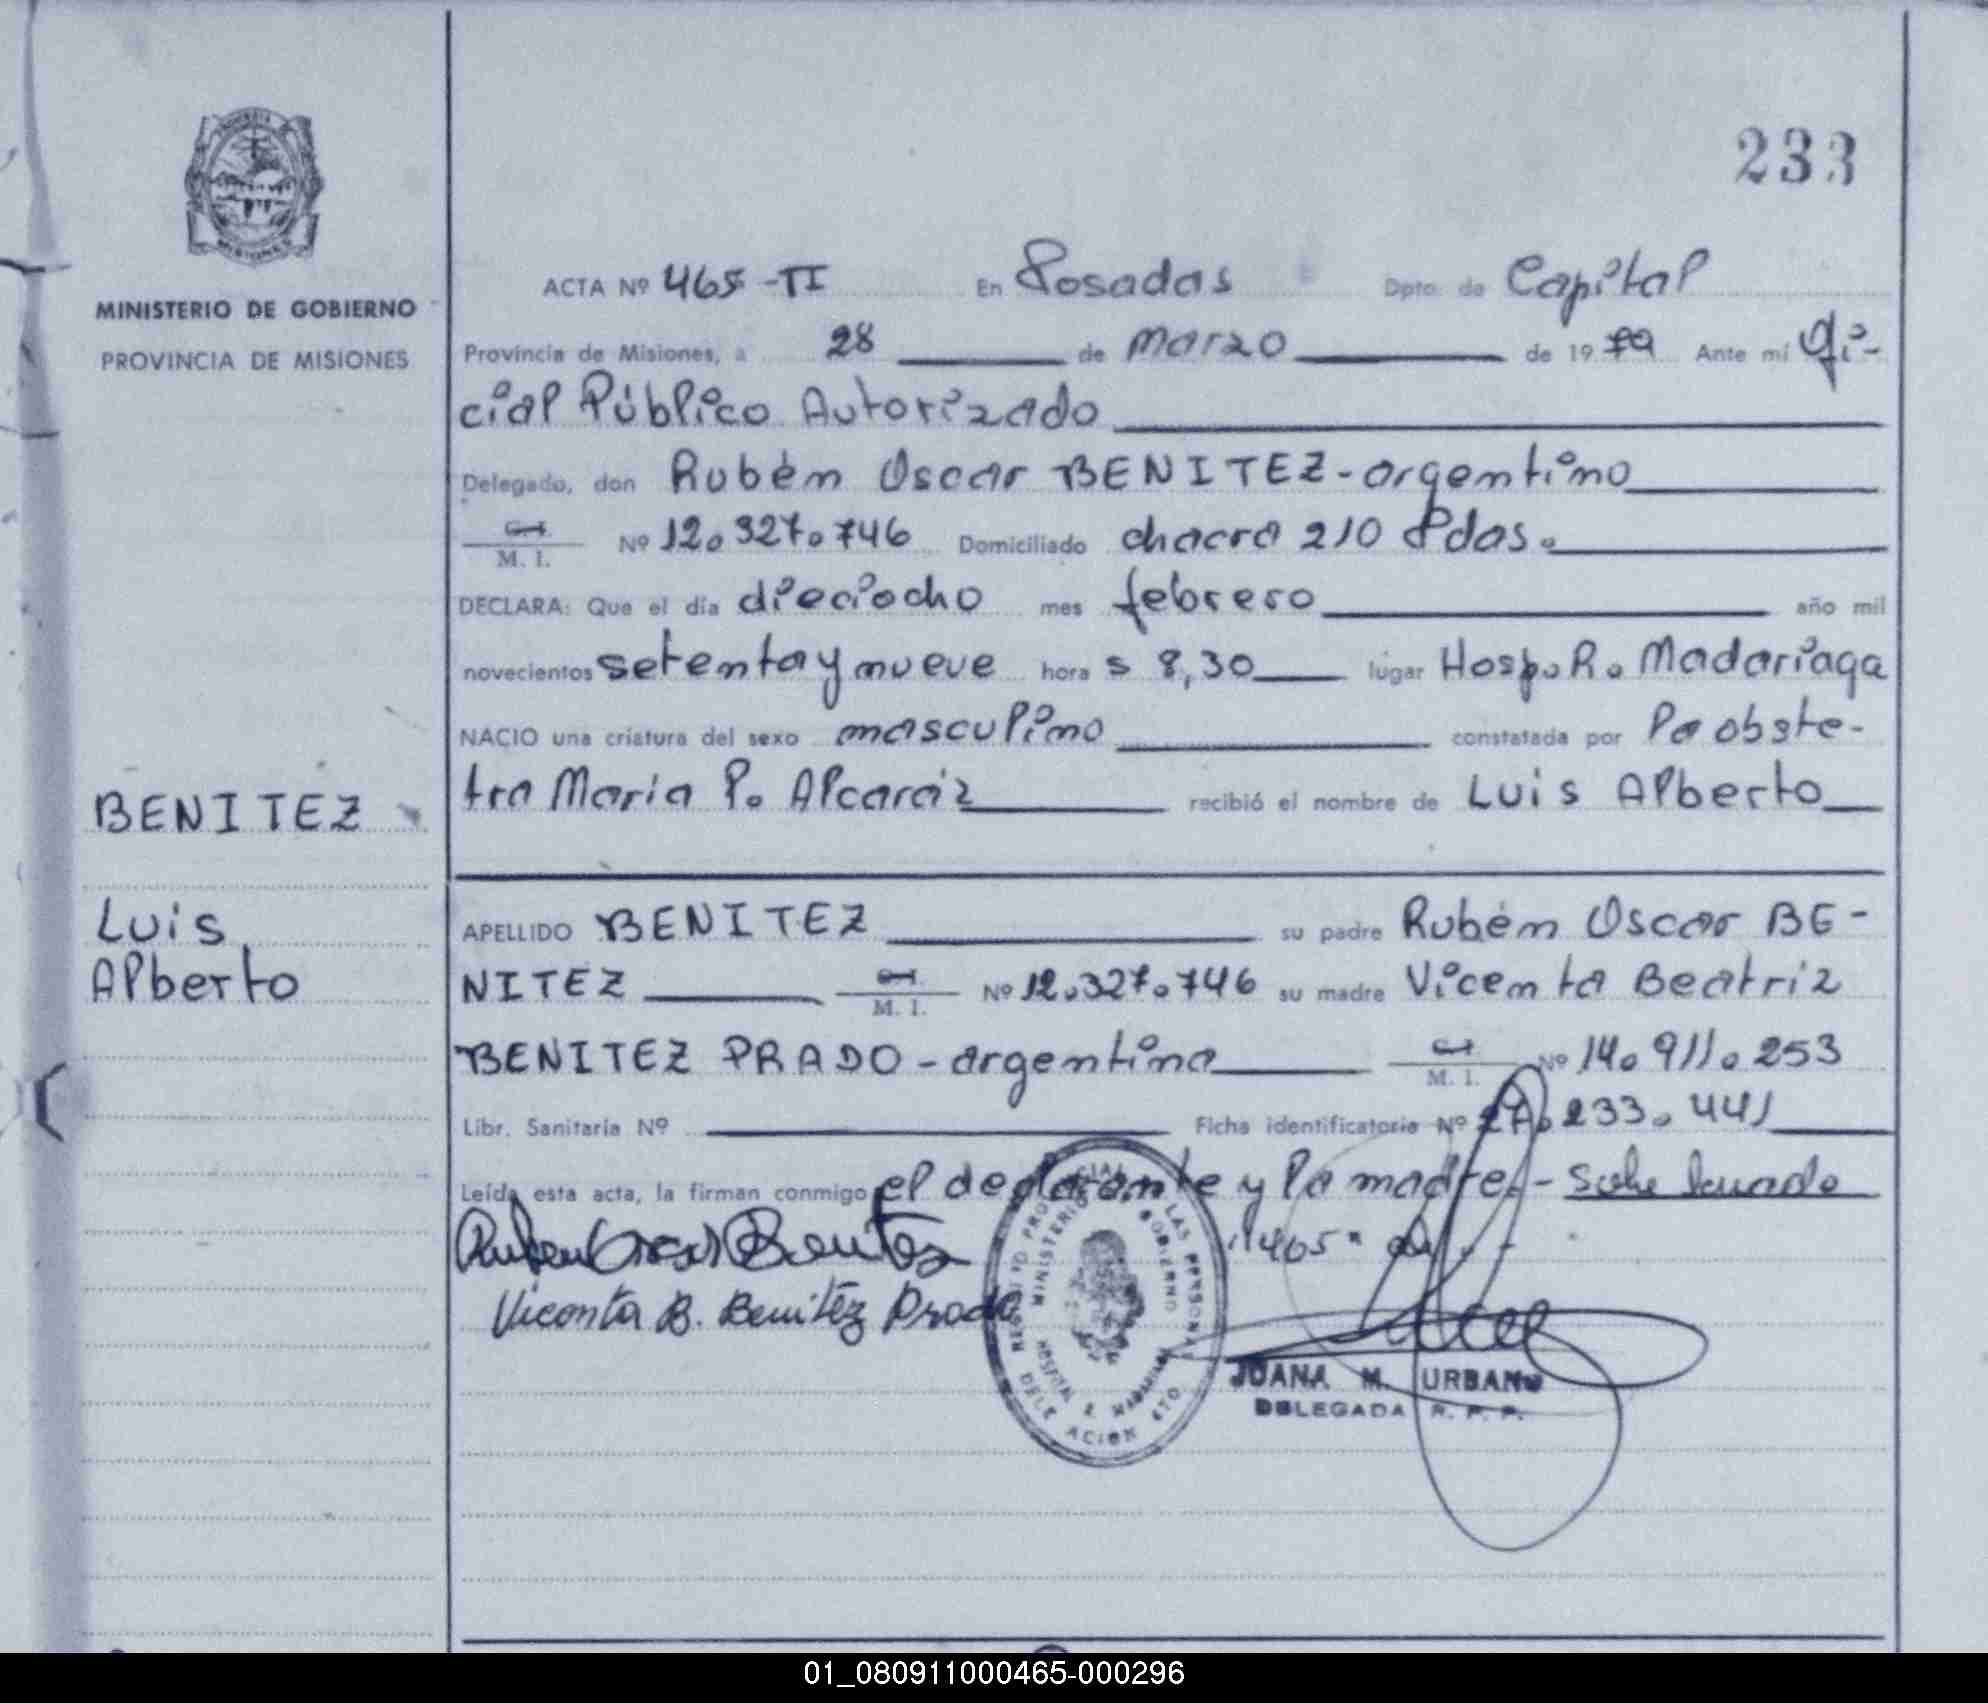 233
MINISTERIO DE GOBIERNO
PROVINCIA DE MISIONES
BENITEZ
Luis
Alberto
ACTA Nº 465-TI En Posadas Dpto. de Capital
Provincia de Misiones, a 28 de marzo de 19 79 Ante mí Ofi-
cial Público Autorizado
Delegado, don Rubén Oscar BENITEZ-argentino
M. I. Nº 12.327.746 Domiciliado chacra 210 Pdas.
DECLARA: Que el día dieciocho mes febrero año mil
novecientos setenta y nueve hora s 8,30 lugar Hosp. R. Madariaga
NACIO una criatura del sexo masculino constatada por la obste-
tra Maria P. Alcaráz recibió el nombre de Luis Alberto
APELLIDO BENITEZ su padre Rubén Oscar BE-
NITEZ M. I. Nº 12.327.746 su madre Vicenta Beatriz
BENITEZ PRADO - argentina M. I. Nº 14.911.253
Libr. Sanitaria Nº Ficha identificatoria Nº 27.233.441
Leída esta acta, la firman conmigo el declarante y la madre. - Sobre
Ruben Oscar Benitez "465"
Vicenta B. Benitez Prado
REGISTRO PROVINCIAL LAS PERSONAS
MINISTERIO GOBIERNO
HOSPITAL R. MADARIAGA
DELEGACION
JUANA M. URBANO
DELEGADA R. P. P.
01_080911000465-000296